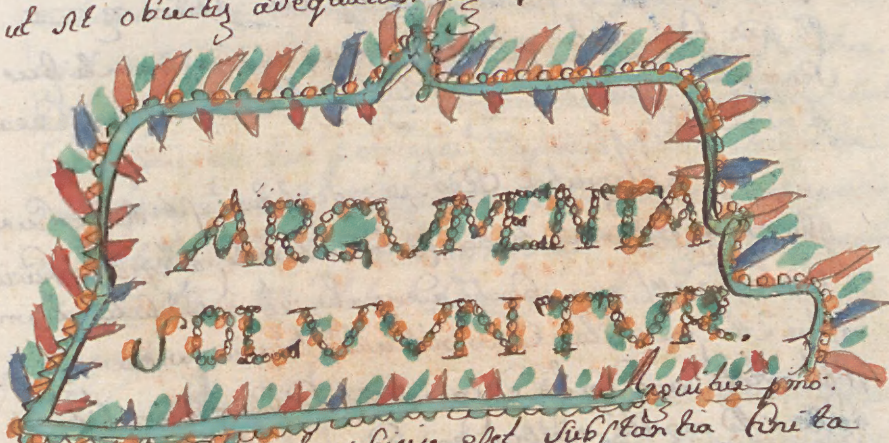 ut sit obiectū adequatū
ARGVMENTA
SOLVVNTVR.
Arguitur pmo.
esset substantia finita